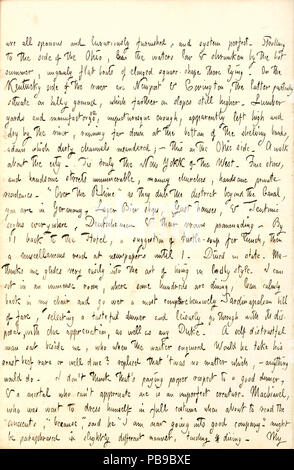 are all spacious and luxuriously furnished, and system perfect. Strolling
to the side of the Ohio, saw the waters low & shrunken by the hot
summer, ungainly flat boats of elongated square shape there lying. On the
Kentucky side of the river are Newport & Covington, the latter partially
situate on hilly ground, which farther on slopes still higher. Lumber-
yards and manufactories, unpicturesque enough, apparently left high and
dry by the river, runaway far down at the bottom of the shelving bank,
adown which dirty channels meandered; — this in the Ohio side. A walk
about the city. 'Tis truly the New York of the West. Fine stores,
and handsome streets innumerable, many churches, handsome private
residences. "Over the Rhine" as they dub the district beyond the Canal
you are in Germany. Lager Bier shops, Gast houses, & Teutonic
scribes everywhere, Deutchermen & their vrows promenading. By
11 back to the Hotel, a suggestion of turtle-soup for lunch, then
a miscellaneous read at newspapers until 1. Dined in state. Me-
thinks one glides very easily into the art of living in lordly style. I can
sit in an immense room, where some hundreds are dining, lean calmly
back in my chair and go over a most comprehensively Sardinapalian bill
of fare, selecting a tasteful dinner and leisurely go through with its dis-
posal with due appreciation, as well as any Duke. A self distrustful
man sat beside me, who when the waiter enquired Would he take his
roast beef rare or well done? replied that 'twas no matter which, — anything
would do. I don't think that's paying proper respect to a good dinner,
& a mortal who can't appreciate one is an imperfect creature. Machiavel,
who was wont to dress himself in full costume when about to read the
ancients, "because," said he "I am now going into good company" might
be paraphrased in slightly different manner, touching dining. My
alamy
PB9BXE